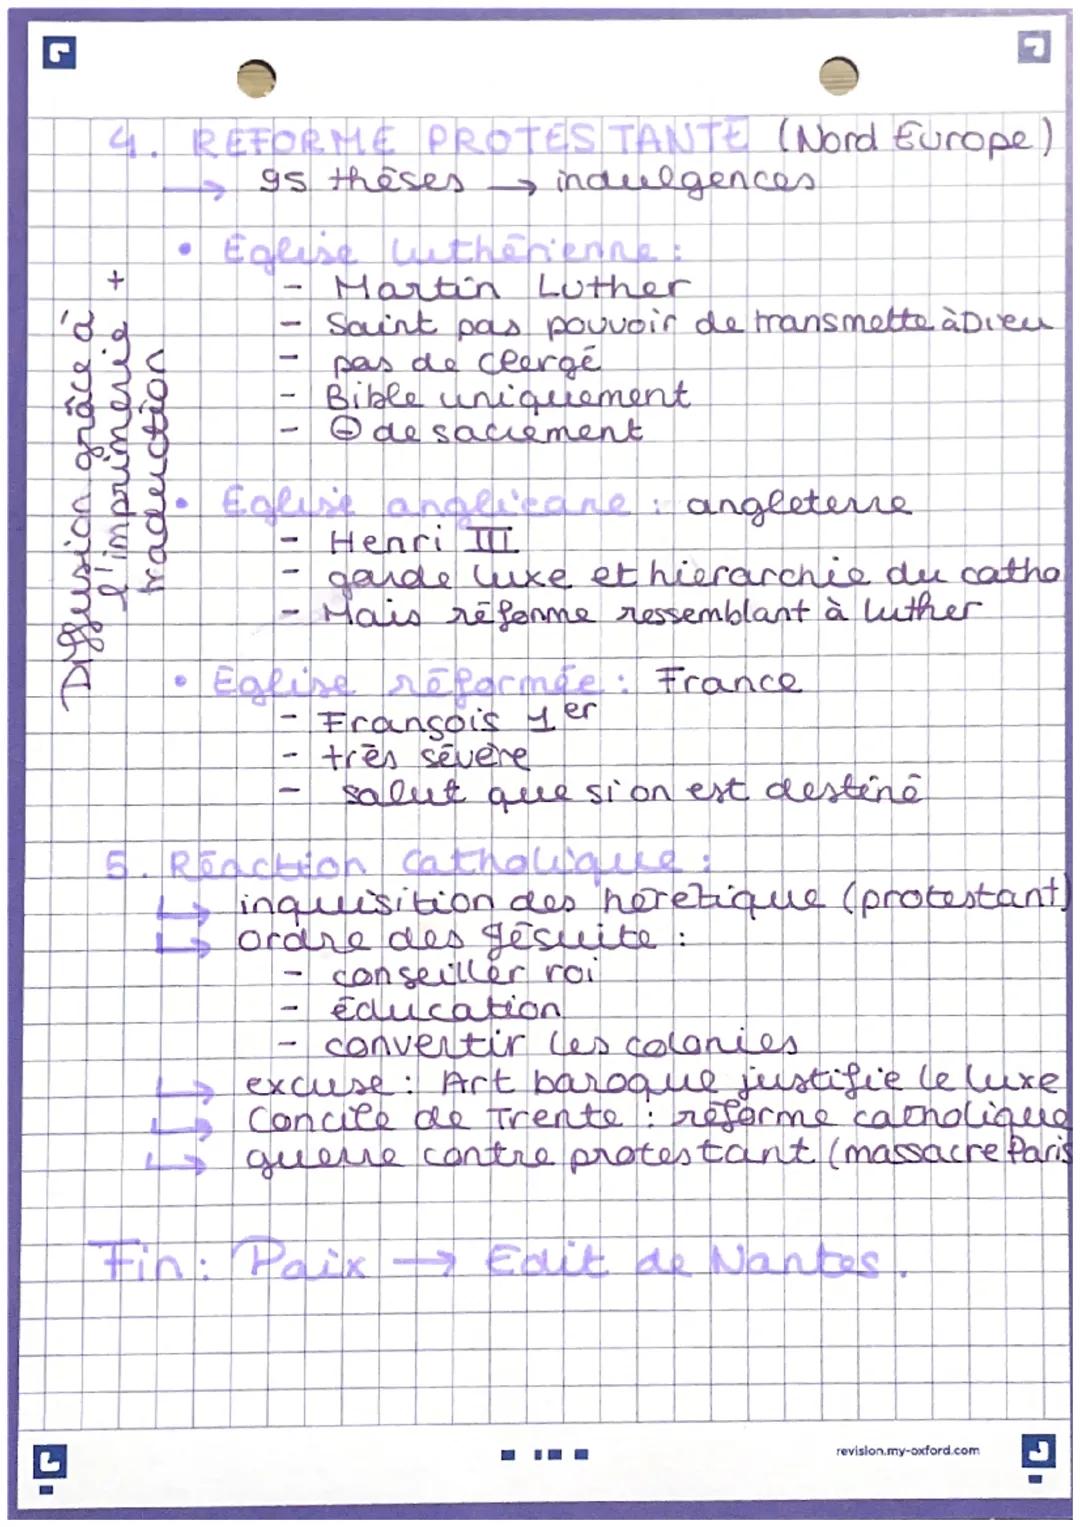 4. REFORME PROTESTANTE (Nord Europe)
→ 95 thèses → indulgences
Diffusion grâce à
l'imprimerie +
traduction
• Eglise luthérienne :
- Martin Luther
- Saint pas pouvoir de transmette à Dieu
- pas de clergé
- Bible uniquement
- ⊖ de sacrement
• Eglise anglicane : angleterre
- Henri III
- garde luxe et hierarchie du catho
- Mais réforme ressemblant à luther
• Eglise réformée : France
- François 1er
- très sévère
- salut que si on est destiné
5. Réaction Catholique :
↳ inquisition des héretique (protestant)
↳ ordre des gésuite :
- conseiller roi
- éducation
- convertir les colonies
↳ excuse : Art baroque justifie le luxe
↳ Concile de Trente : réforme catholique
↳ guerre contre protestant (massacre Paris
Fin : Paix → Edit de Nantes.
revision.my-oxford.com